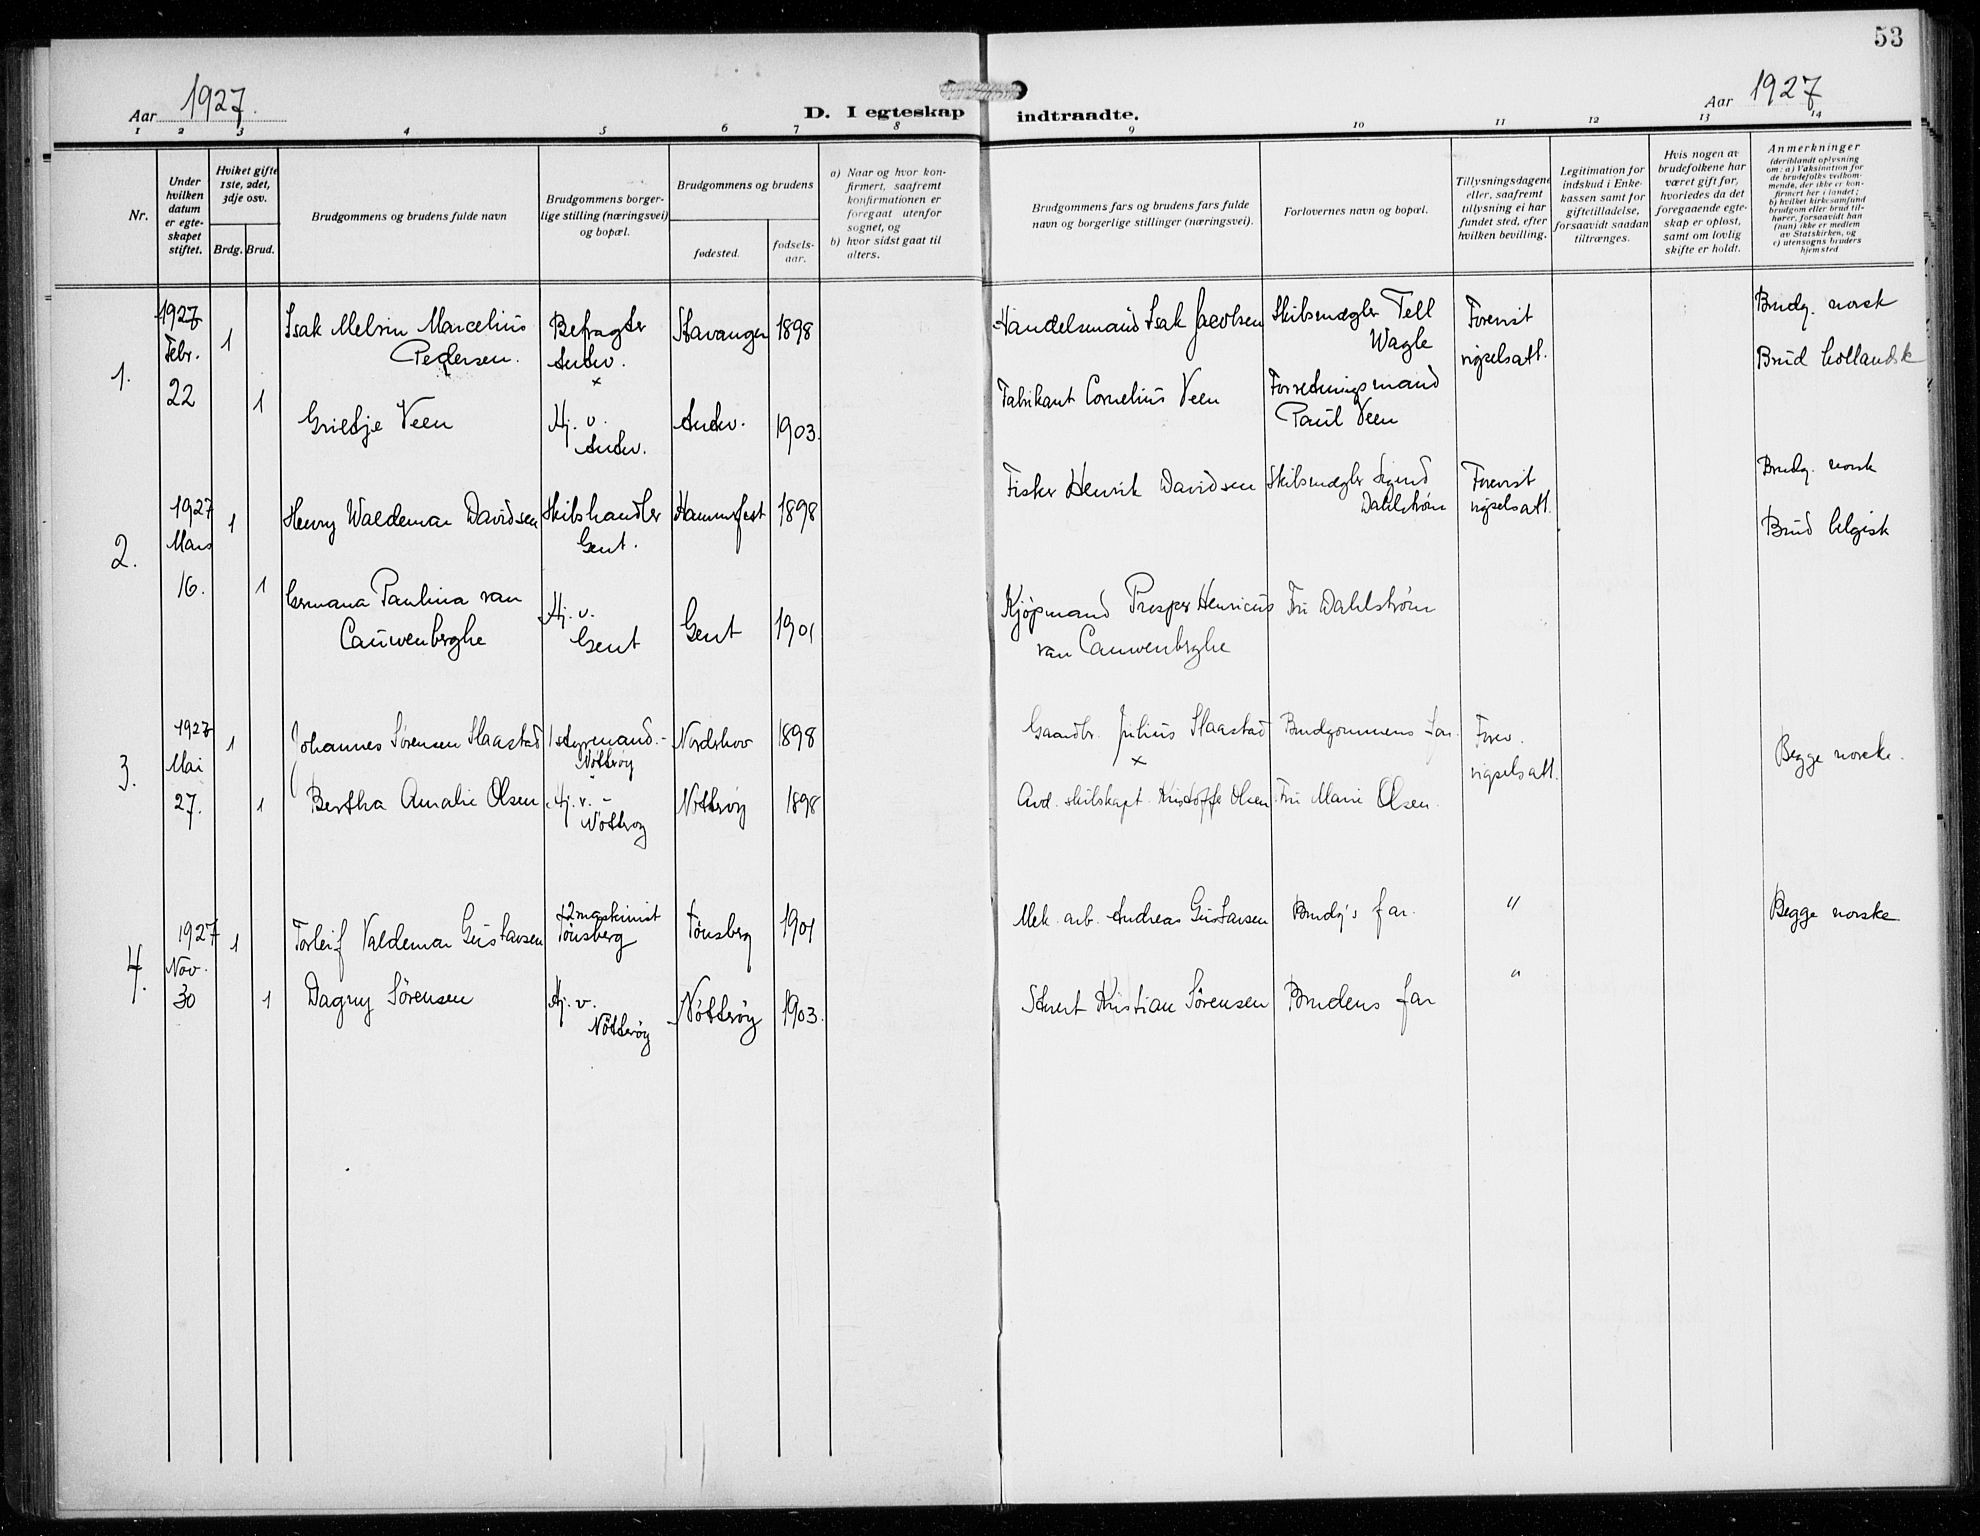 53
Aar 1927.
D. I egteskap indtraadte.
Aar 1927
1 2 3 4 5 6 7 8 9 10 11 12 13 14
Nr.
Under hvilken datum er egte-skapet stiftet.
Hviket gifte 1ste, 2det, 3dje osv.
Brdg. Brud.
Brudgommens og brudens fulde navn
Brudgommens borger-lige stilling (næringsvei) og bopæl.
Brudgommens og brudens
fødested.
fødsels-aar.
a) Naar og hvor kon-firmert, saafremt konfirmationen er foregaat utenfor sognet, og
b) hvor sidst gaat til alters.
Brudgommens fars og brudens fars fulde navn og borgerlige stillinger (næringsvei).
Forlovernes navn og bopæl.
Tillysningsdagene eller, saafremt tillysning ei har fundet sted, efter hvilken bevilling.
Legitimation for indskud i Enke-kassen samt for giftetilladelse, forsaavidt saadan tiltrænges.
Hvis nogen av brudefolkene har været gift før, hvorledes da det foregaaende egte-skap er opløst, samt om lovlig skifte er holdt.
Anmerkninger
(deriblandt oplysning om: a) Vaksination for de brudefolks vedkom-mende, der ikke er kon-firmert her i landet; b) hvilket kirkesamfund brudgom eller brud til-hører, forsaavidt han (hun) ikke er medlem av Statskirken, og c) utensogns bruders hjemsted
1.
1927 Febr. 22
1 Isak Melvin Marcelius Pedersen.
Befragter Antw.
Stavanger 1898
Handelsmand Isak Jacobsen
Skibsmægler Tell Wagle
Forevist vigselsatt.
Brudg. norsk
Brud hollandsk
1 Grietje Veen
Hj. v. Antw.
Antw. 1903.
Fabrikant Cornelius Veen
Forretningsmand Paul Veen
2.
1927 Mars 16.
1 Henry Waldemar Davidsen
Skibshandler Gent.
Hammerfest 1898
Fisker Henrik Davidsen
Skibsmægler Sigurd Dahlstrøm
Forevist vigselsatt.
Brudg. norsk
Brud belgisk
1 Germana Paulina van Cauwenberghe
Hj. v. Gent
Gent 1901
Kjøpmand Prosper Henricus van Cauwenberghe
Fru Dahlstrøm
3.
1927 Mai 27.
1 Johannes Sørensen Slaastad
1 styrmand.- Nøtterøy
Nordskov 1898
Gaardbr. Julius Slaastad
Brudgommens far.
Forev. vigselsatt.
Begge norske.
1 Bertha Amalie Olsen
Hj. v. - Nøtterøy
Nøtterøy 1898
Avd. skibskapt. Kristoffe Olsen
Fru Marie Olsen.
4.
1927 Nov. 30
1 Torleif Valdemar Gustavsen
2 maskinist Tønsberg
Tønsberg 1901
Mek. arb. Andreas Gustavsen
Brudg's far.
"
Begge norske
1 Dagny Sørensen
Hj. v. Nøtterøy
Nøtterøy 1903.
Stuert Kristian Sørensen
Brudens far
"